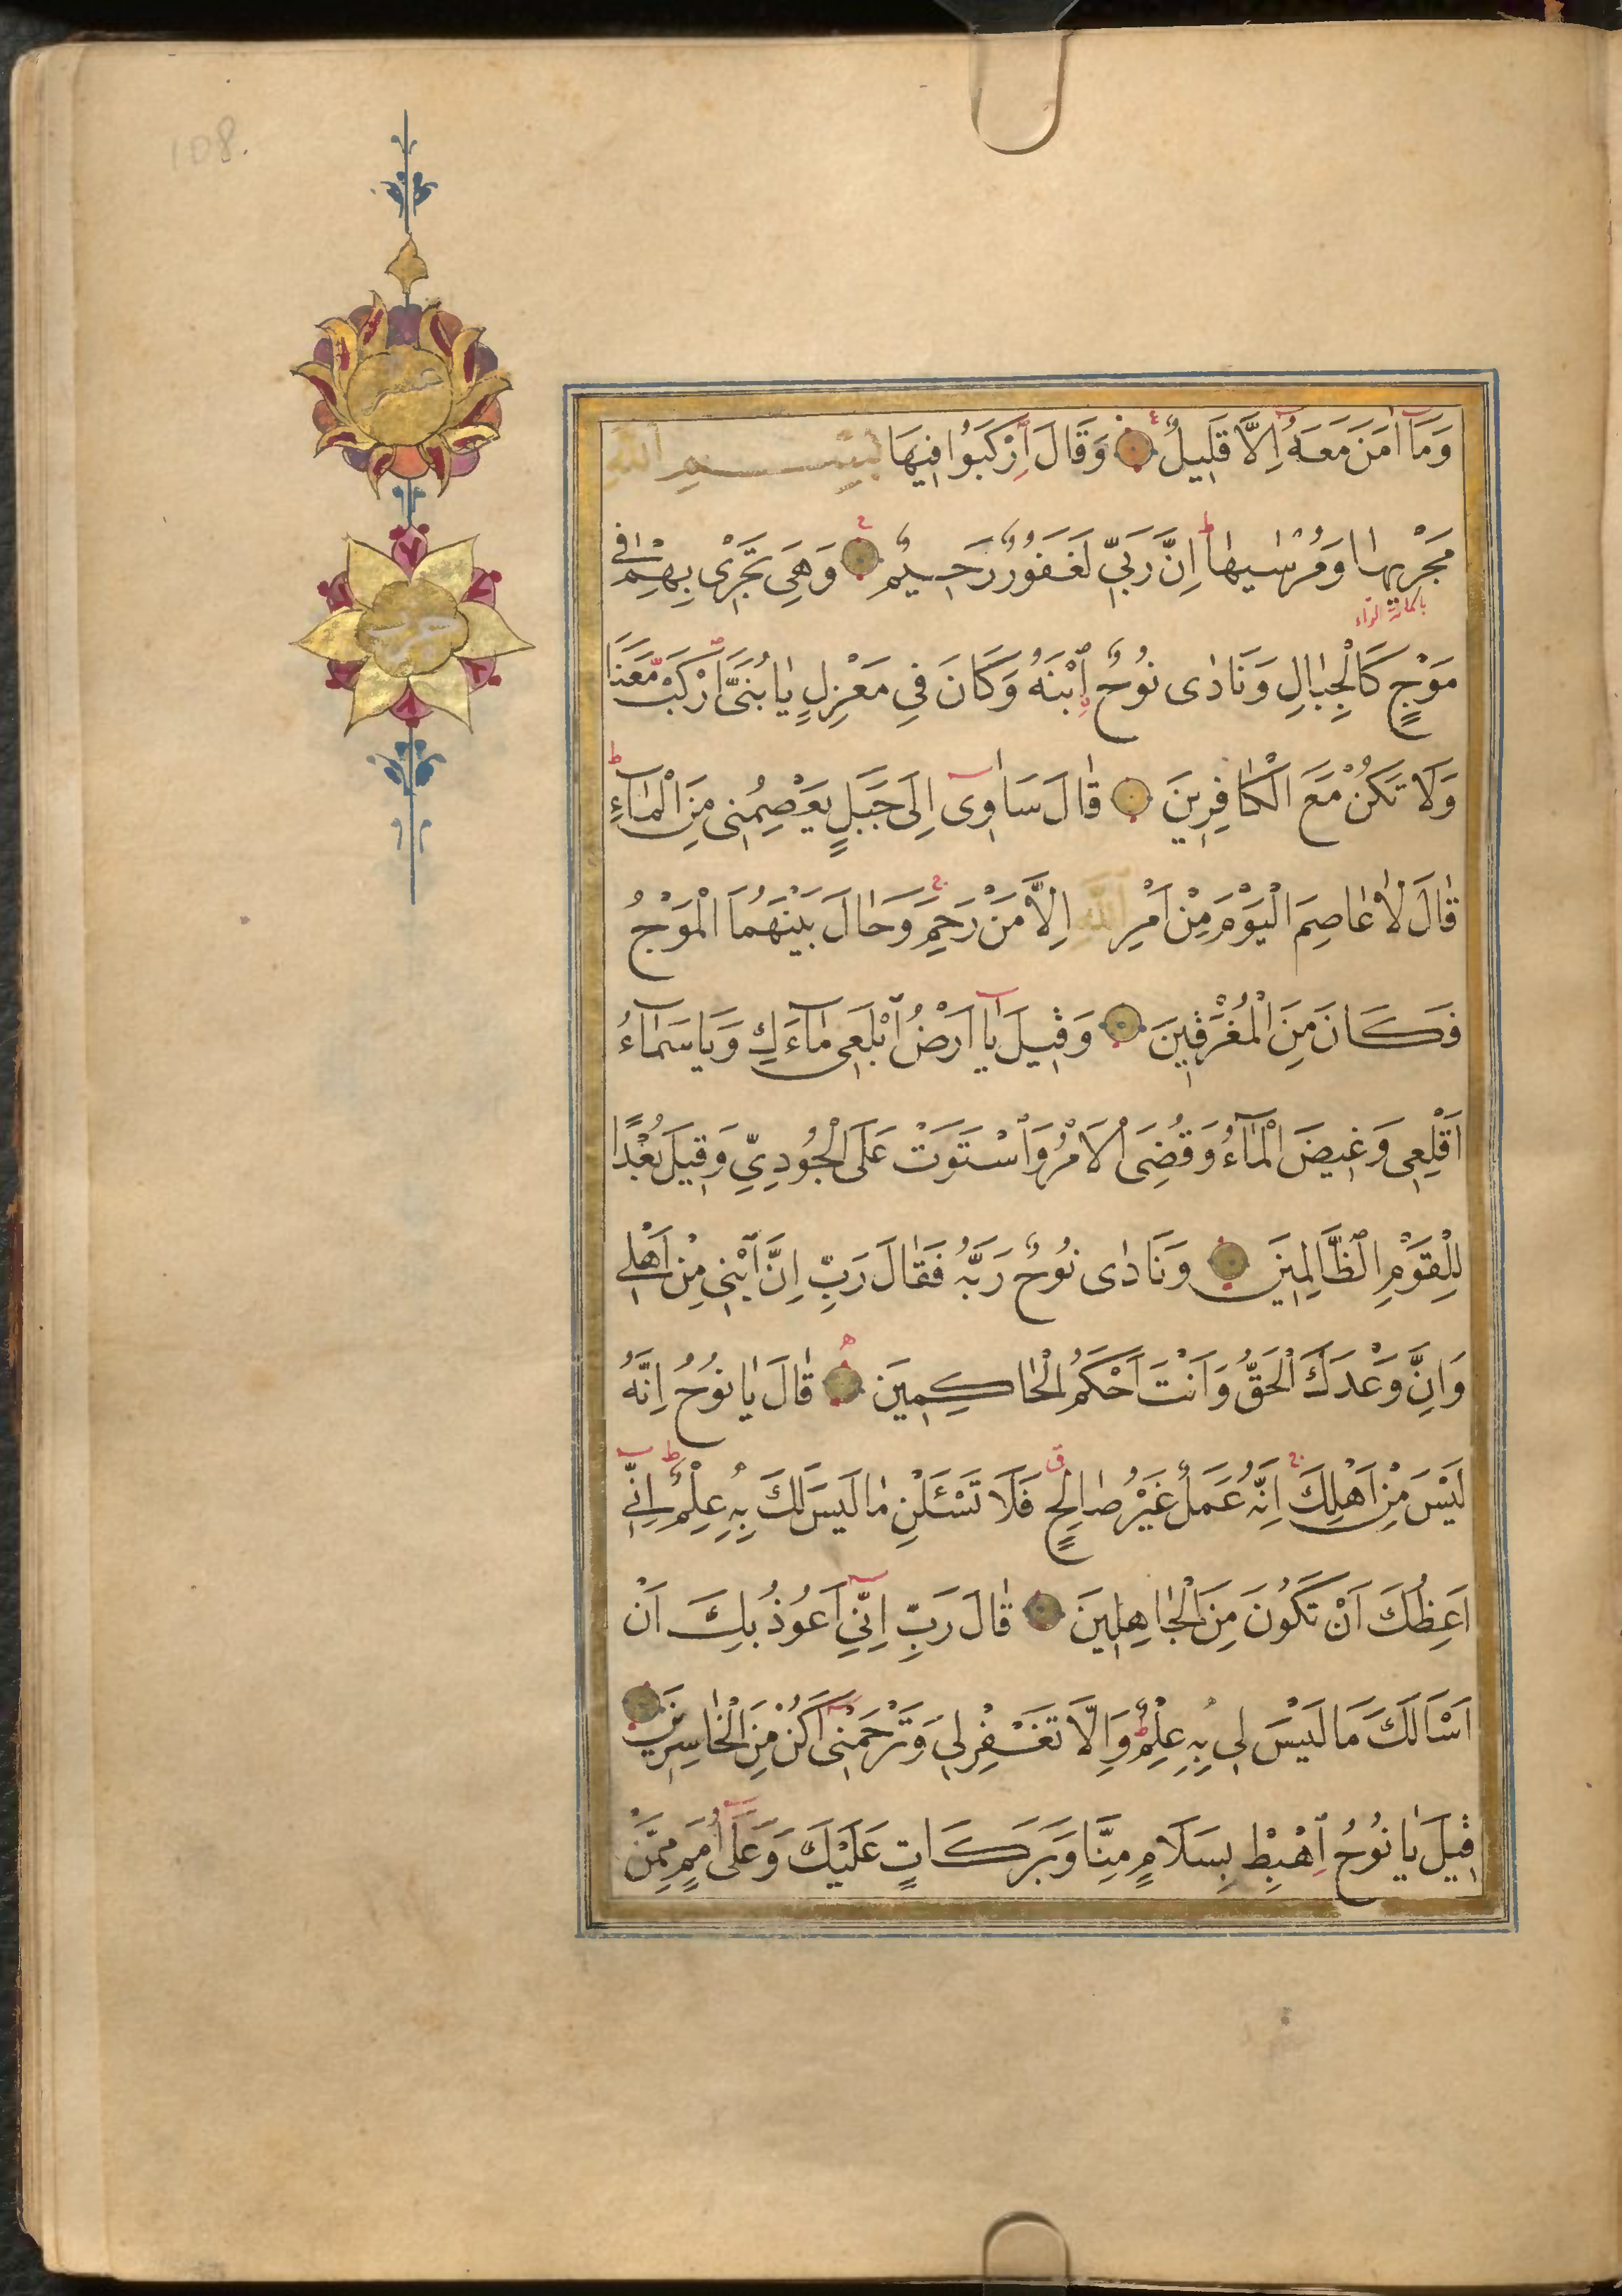 108.
وَمَآ اٰمَنَ مَعَهُٓ اِلَّا قَلِيلٌ وَقَالَ ٱِرْكَبُوا فِيهَا بِسْمِ اللّٰهِ
مَجْرٰيهٰا وَمُرْسٰيهٰا ط اِنَّ رَبِّي لَغَفُورٌ رَحِيمٌ وَهِيَ تَجْرٰى بِهِمْ فٖى
باماله الراء
مَوْجٍ كَالْجِبٰالِ وَنَادٰى نُوحٌ ٱِبْنَهُ وَكَانَ فِي مَعْزِلٍ يٰا بُنَىَّ ٱرْكَبْ مَعَنَا
وَلَا تَكُنْ مَعَ الْكٰافِرِينَ قٰالَ سَاٰوٖى اِلَى جَبَلٍ يَعْصِمُنٖى مِنَ الْمٰآءِ ط
قٰالَ لٰا عٰاصِمَ الْيَوْمَ مِنْ اَمْرِ اللّٰهِ اِلَّا مَنْ رَحِمَ ج وَحٰالَ بَيْنَهُمَا الْمَوْجُ
فَكَانَ مِنَ الْمُغْرَقٖينَ وَقٖيلَ يٰآ اَرْضُ ٱبْلَعٖى مٰآءَكِ وَيَا سَمٰآءُ
اَقْلِعٖى وَغٖيضَ الْمَآءُ وَقُضِىَ الْاَمْرُ وَٱسْتَوَتْ عَلَى الْجُودِيِّ وَقِيلَ بُعْدًا
لِلْقَوْمِ الظَّالِمٖينَ وَنَادٰى نُوحٌ رَبَّهُ فَقَالَ رَبِّ اِنَّ ٱبْنٖى مِنْ اَهْلٖى
وَاِنَّ وَعْدَكَ الْحَقُّ وَاَنْتَ اَحْكَمُ الْحٰاكِمٖينَ قٰالَ يٰا نُوحُ اِنَّهُ
لَيْسَ مِنْ اَهْلِكَ ج اِنَّهُ عَمَلٌ غَيْرُ صٰالِحٍ ق فَلَا تَسْـَٔلْنِ مٰا لَيْسَ لَكَ بِهٖ عِلْمٌ ط اِنّٖى
اَعِظُكَ اَنْ تَكُونَ مِنَ الْجٰاهِلٖينَ قٰالَ رَبِّ اِنّٖي اَعُوذُ بِكَ اَنْ
اَسْاَلَكَ مَا لَيْسَ لٖى بِهٖ عِلْمٌ ط وَاِلَّا تَغْفِرْ لٖى وَتَرْحَمْنٖى اَكُنْ مِنَ الْخٰاسِرٖينَ
قٖيلَ يٰا نُوحُ ٱِهْبِطْ بِسَلَامٍ مِنَّا وَبَرَكَاتٍ عَلَيْكَ وَعَلَى اُمَمٍ مِمَّنْ